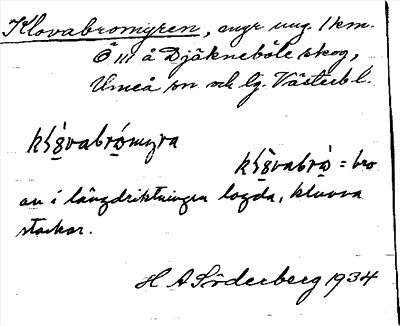 Klovabromyren, myr ung. 1 km.
Ö m å Djäkneböle skog,
Umeå sn och lg. Västerb l.
bro
av i längdriktningen lagda, kluvna
stockar.
H A Söderberg 1934